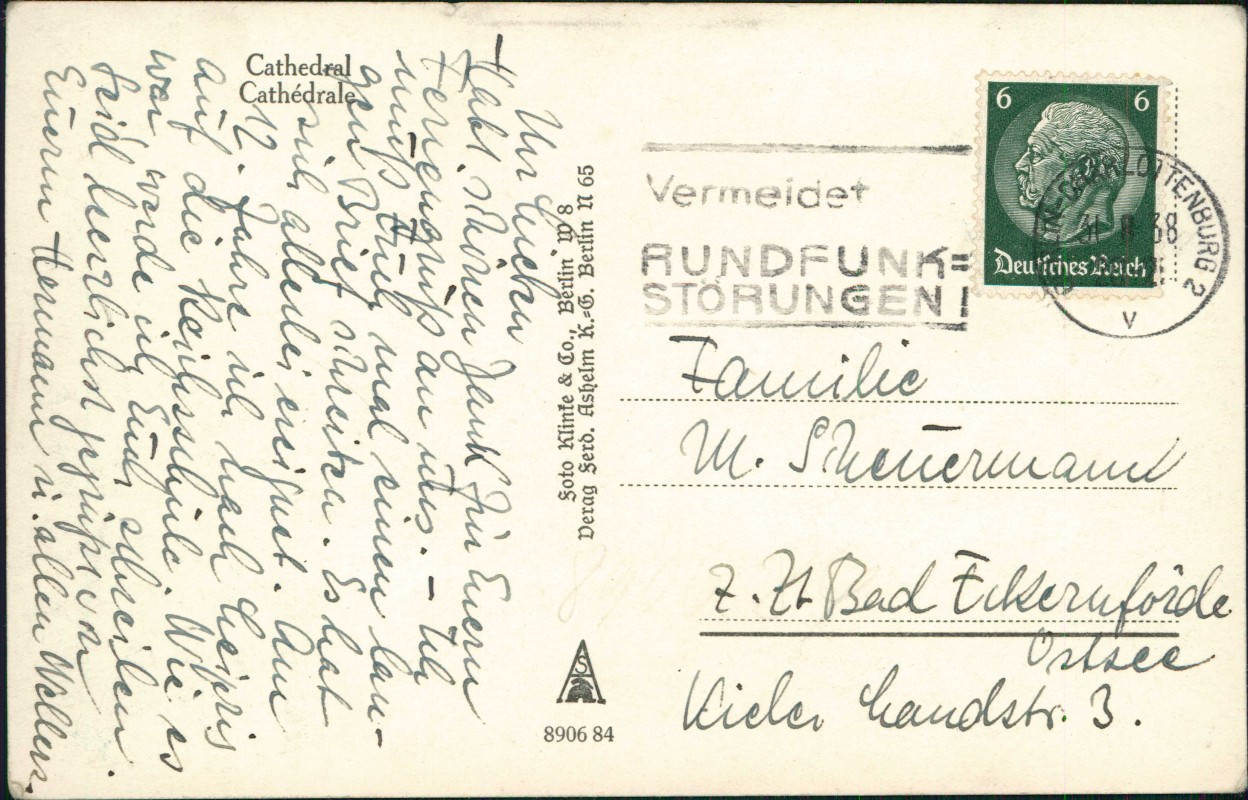 Cathedral
Cathédrale
Ihr Lieben
Habt schönen Dank für Euern
Feriengruß an uns. – Ich
muß Euch mal einen lan-
gen Brief schreiben. Es hat
sich allerlei ereignet. Am
12. fahre ich nach Leipzig
auf die Reichsschule. Wie es
war werde ich Euch schreiben.
Seid herzlichst gegrüßt von
Euerm Hermann u. allen Wellers.
Foto Klinke & Co., Berlin W 8
Verag Ferd. Ashelm K.=G. Berlin N 65
AS
8906 84
Vermeidet
RUNDFUNK=
STÖRUNGEN!
6 6
Deutsches Reich
BERLIN-CHARLOTTENBURG 2
38
V
Familie
M. Scheuermann
z. Zt. Bad Eckernförde
Ostsee
Kieler Landstr. 3.